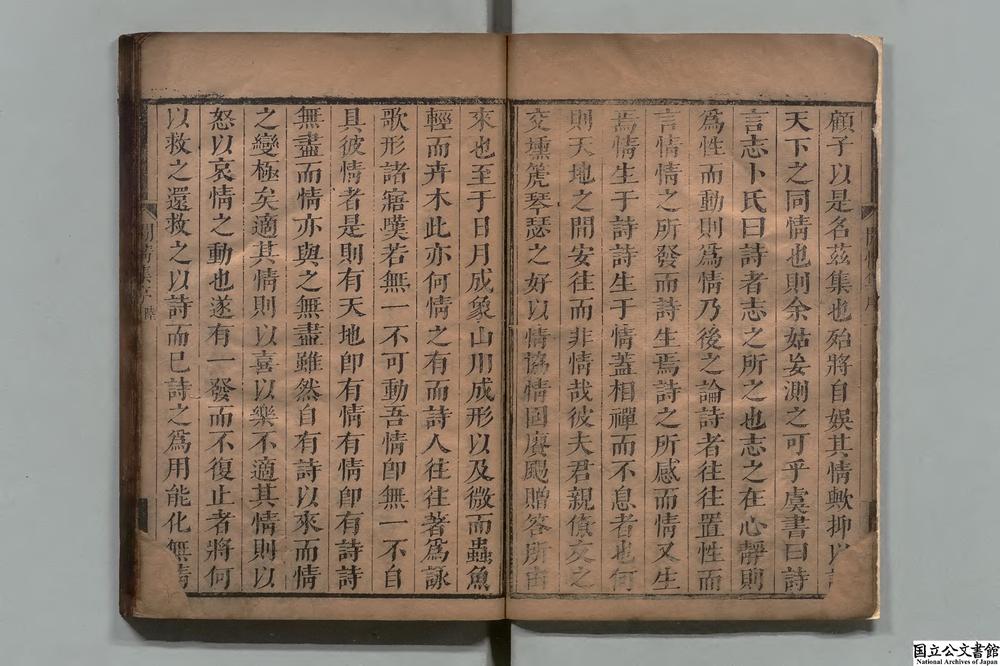 顧子以是名茲集也殆將自娛其情歟抑以
天下之同情也則余姑妄測之可乎虞書曰詩
言志卜氏曰詩者志之所之也志之在心靜則
爲性而動則爲情乃後之論詩者往往置性而
言情情之所發而詩生焉詩之所感而情又生
焉情生于詩詩生于情蓋相禪而不息者也何
則天地之間安往而非情哉彼夫君親僚友之
交壎箎琴瑟之好以情協情固賡颺贈答所由
來也至于日月成象山川成形以及微而蟲魚
輕而卉木此亦何情之有而詩人往往著爲詠
歌形諸寤嘆若無一不可動吾情卽無一不自
具彼情者是則有天地卽有情有情卽有詩詩
無盡而情亦與之無盡雖然自有詩以來而情
之變極矣適其情則以喜以樂不適其情則以
怒以哀情之動也遂有一發而不復止者將何
以救之還救之以詩而已詩之爲用能化無情
国立公文書館
National Archives of Japan